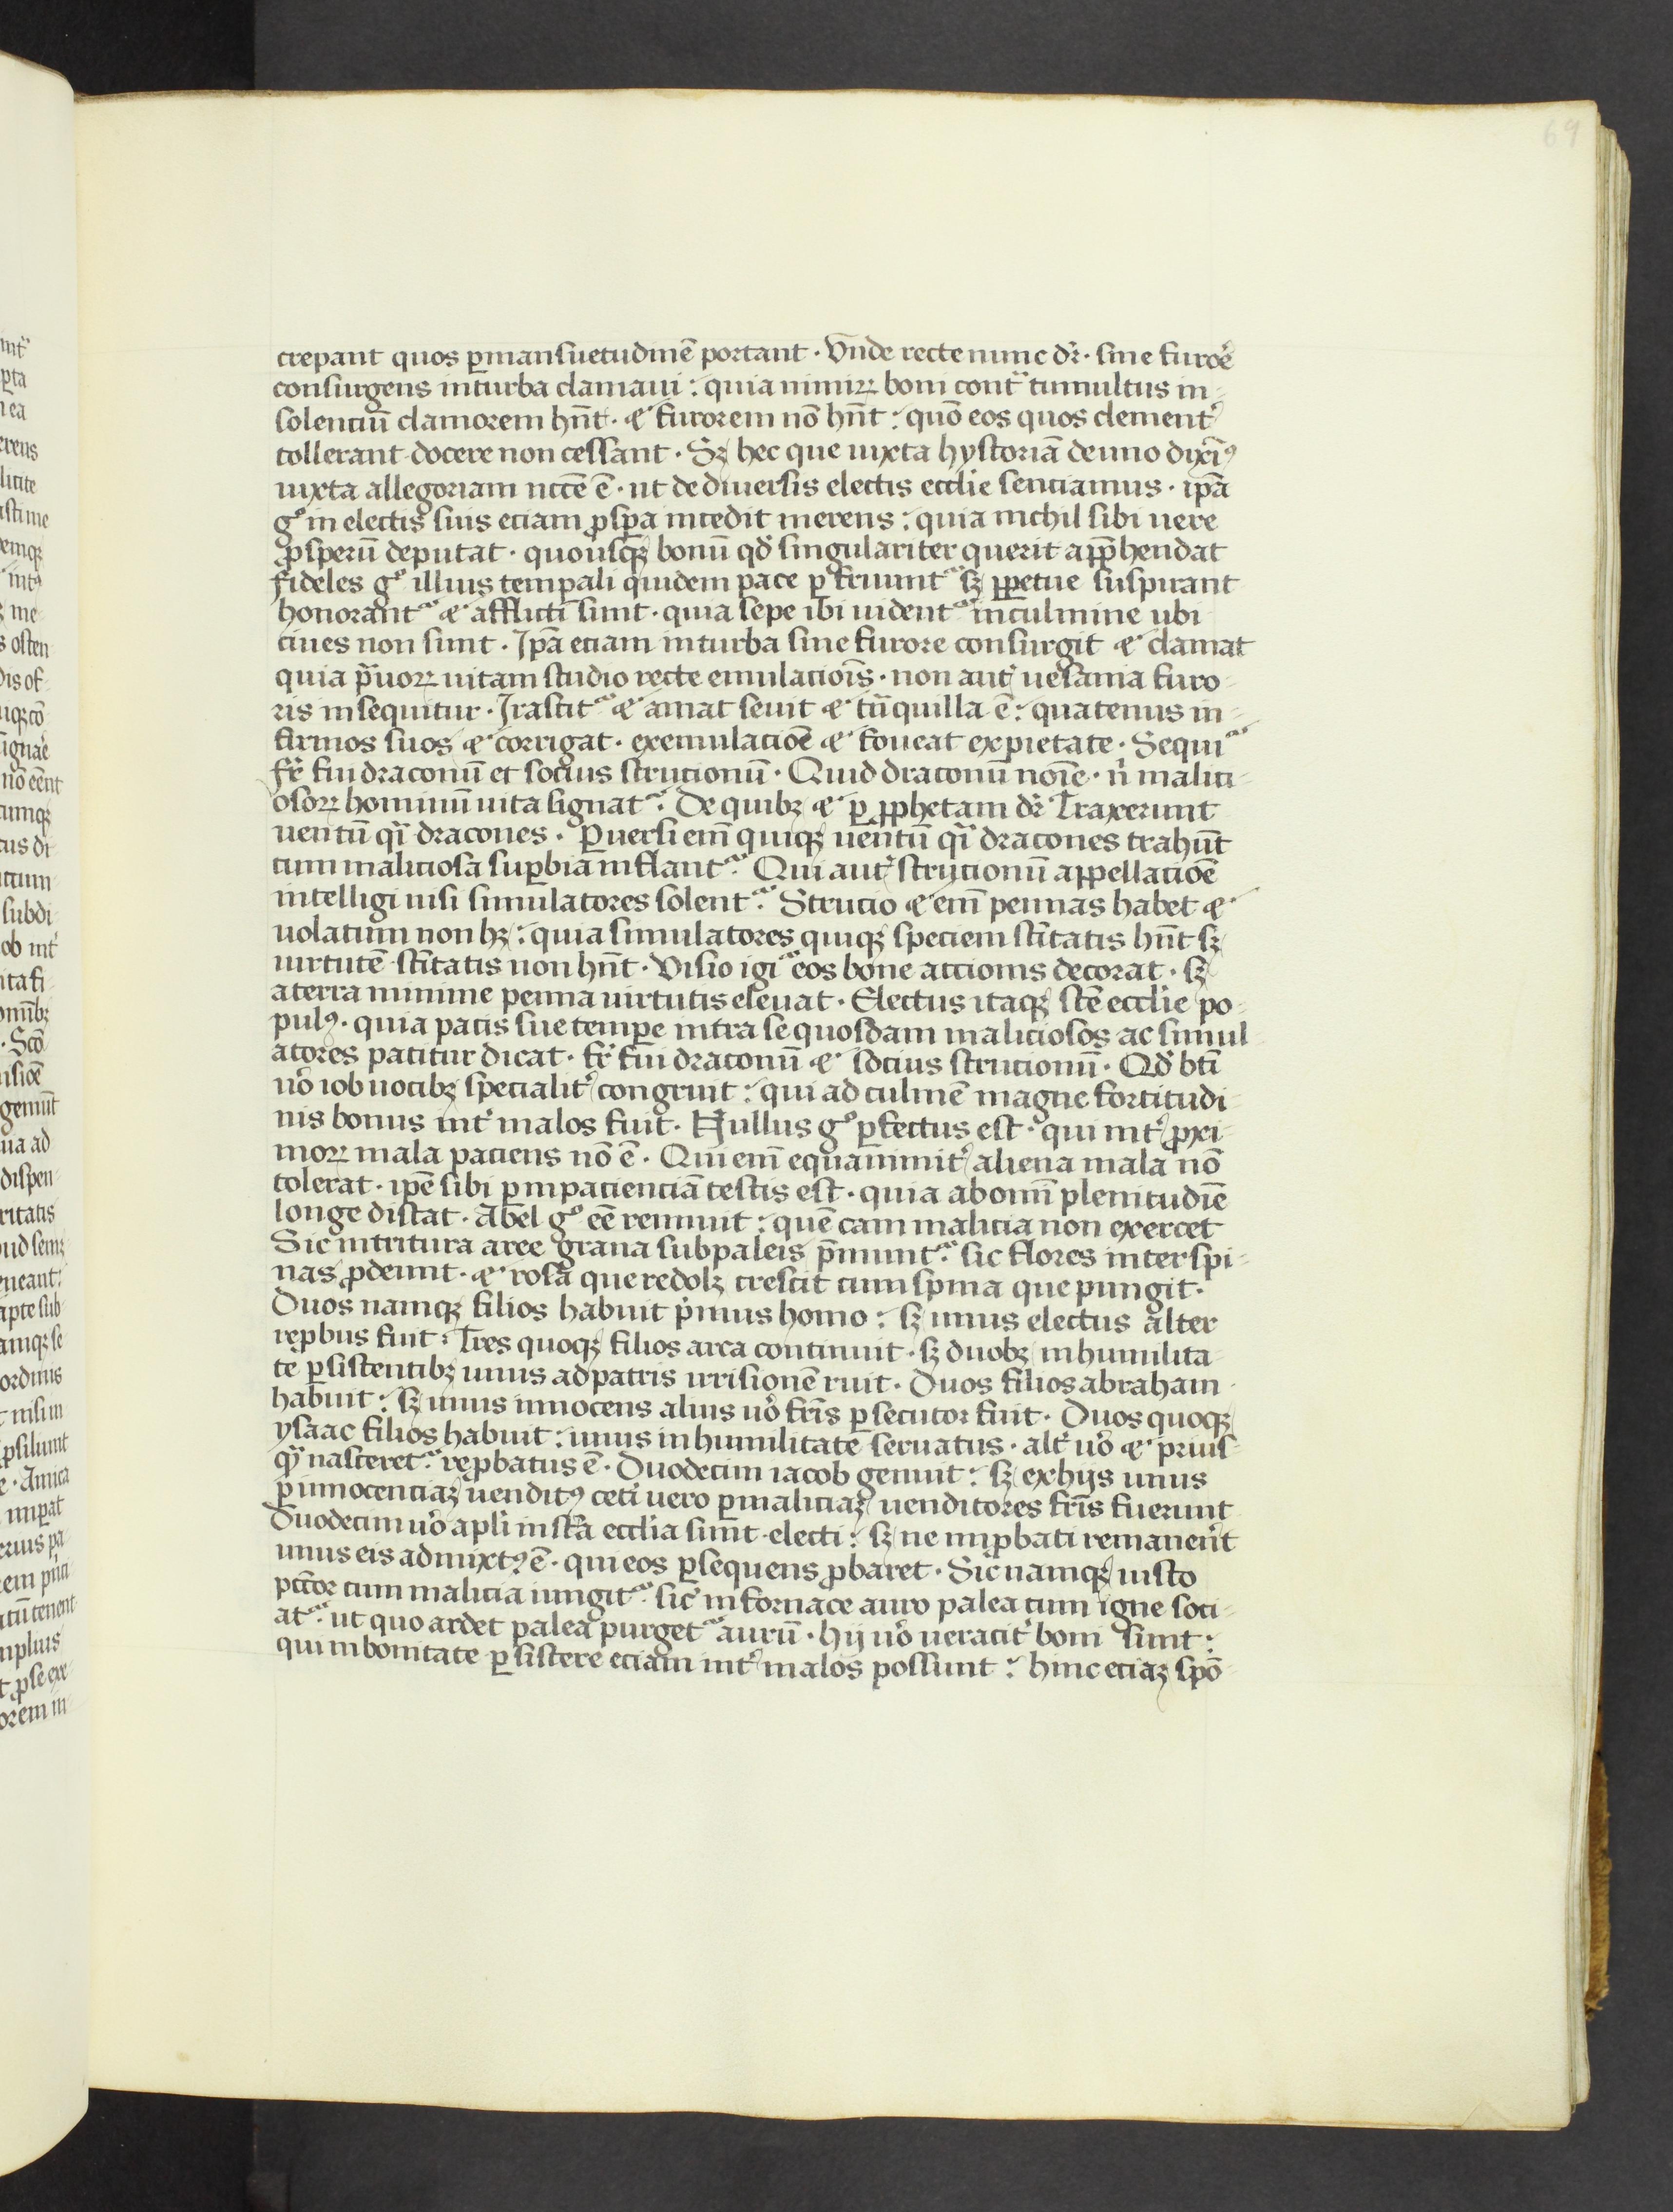 69
crepant quos ꝑmansuetudinē portant · Vnde recte nunc dr̄ · sine furoē
consurgens inturba clamaui : quia nimiꝝ boni contᵃ tumultus in-
solenciū clamorem hn̄t · & furorem nō hn̄t : quō eos quos clement͛
tollerant docere non cessant · Sꝫ hec que iuxta hystoriā de uno dixim᷒
iuxta allegoriam nc̄ce ē · ut de diuersis electis eccl̄ie senciamus · ip̄a
gͦ in electis suis eciam ꝓsꝑa incedit merens : quia nichil sibi uere
ꝓsperū deputat · quousqꝫ bonū qd͛ singulariter querit app̄hendat
fideles gͦ illius temꝑali quidem pace ꝑfruunt᷑ sꝫ ꝑpetue suspirant
honorant᷑ & afflicti sunt · quia sepe ibi uident᷑ inculmine ubi
ciues non sunt · Ip̄a etiam inturba sine furore consurgit & clamat
quia p̄uoꝝ uitam studio recte emulaciōis · non aut͛ uesania furo-
ris insequitur · Irascit᷑ & amat seuit & tn̄quilla ē : quatenus in-
firmos suos & corrigat · exemulacioē & foueat expietate · Sequi᷑
fr̄ fui draconū et socius strucionū · Quid draconū noīe · n͛ malici-
osoꝝ hominū uita signat᷑ · De quibꝫ & ꝑ ꝓphetam dr̄ Traxerunt
uentū qͣi dracones · Puersi eni̅ quiqꝫ uentū qͣi dracones trahūt
cum maliciosa suꝑbia inflant᷑ · Qui aut͛ strucionū appellacioē
intelligi nisi simulatores solent᷑ · Strucio & eni̅ pennas habet &
uolatum non hꝫ : quia simulatores quiqꝫ speciem sc̄itatis hn̄t sꝫ
uirtutē sc̄itatis non hn̄t · Visio igi᷑ eos bone accionis decorat · sꝫ
aterra minime penna uirtutis eleuat · Electus itaqꝫ sc̄e eccl̄ie po-
pul᷒ · quia pacis sue temꝑe intra se quosdam maliciosos ac simul
atores patitur dicat · fr̄ fui draconū & socius strucionū · Qd͛ bt̄i
uͦo iob uocibꝫ specialit͛ congruit : qui ad culmē magne fortitudi-
nis bonus int͛ malos fuit · Nullus gͦ ꝑfectus est · qui int͛ ꝓxi-
moꝝ mala paciens nō ē · Qui eni̅ equanimit͛ aliena mala nō
tolerat · ip̄e sibi ꝑ inpacienciā testis est · quia abomi̅ plenitudīe
longe distat · Abel gͦ eē rennuit : quē caim malicia non exercet
Sic intritura aree grana subpaleis p̄munt᷑ sic flores inter spi-
nas ꝓdeunt · & rosa que redolꝫ crescit cum spina que pungit ·
Duos namqꝫ filios habuit p͛mus homo : sꝫ unus electus alter
reꝓbus fuit · Tres quoqꝫ filios arca continuit · sꝫ duobꝫ inhumilita-
te ꝑsistentibꝫ unus ad patris irrisionē ruit · Duos filios abraham
habuit : sꝫ unus innocens alius uͦo fr̄is ꝑsecutor fuit · Duos quoqꝫ
ysaac filios habuit : unus in humilitate seruatus · alt͛ uͦo & prius-
qͣ nasceret᷑ reꝓbatus ē · Duodecim iacob genuit : sꝫ exhijs unus
ꝑ innocenciaꝫ uendit᷒ ceti͛ uero ꝑ maliciaꝫ uenditores fr̄is fuerunt
Duodecim uͦo apl̄i in sc̄a eccl̄ia sunt electi : sꝫ ne inꝓbati remaner͛t
unus eis admixt᷒ ē · qui eos ꝑsequens ꝓbaret · Sic namqꝫ iusto
pcc̄or cum malicia iungit᷑ sic͛ in fornace auro palea cum igne soci-
at᷑ · ut quo ardet palea purget᷑ aurū · hij uͦo ueracit͛ boni sunt :
qui inbonitate ꝑsistere eciam int͛ malos possunt : hinc eciaꝫ spō-